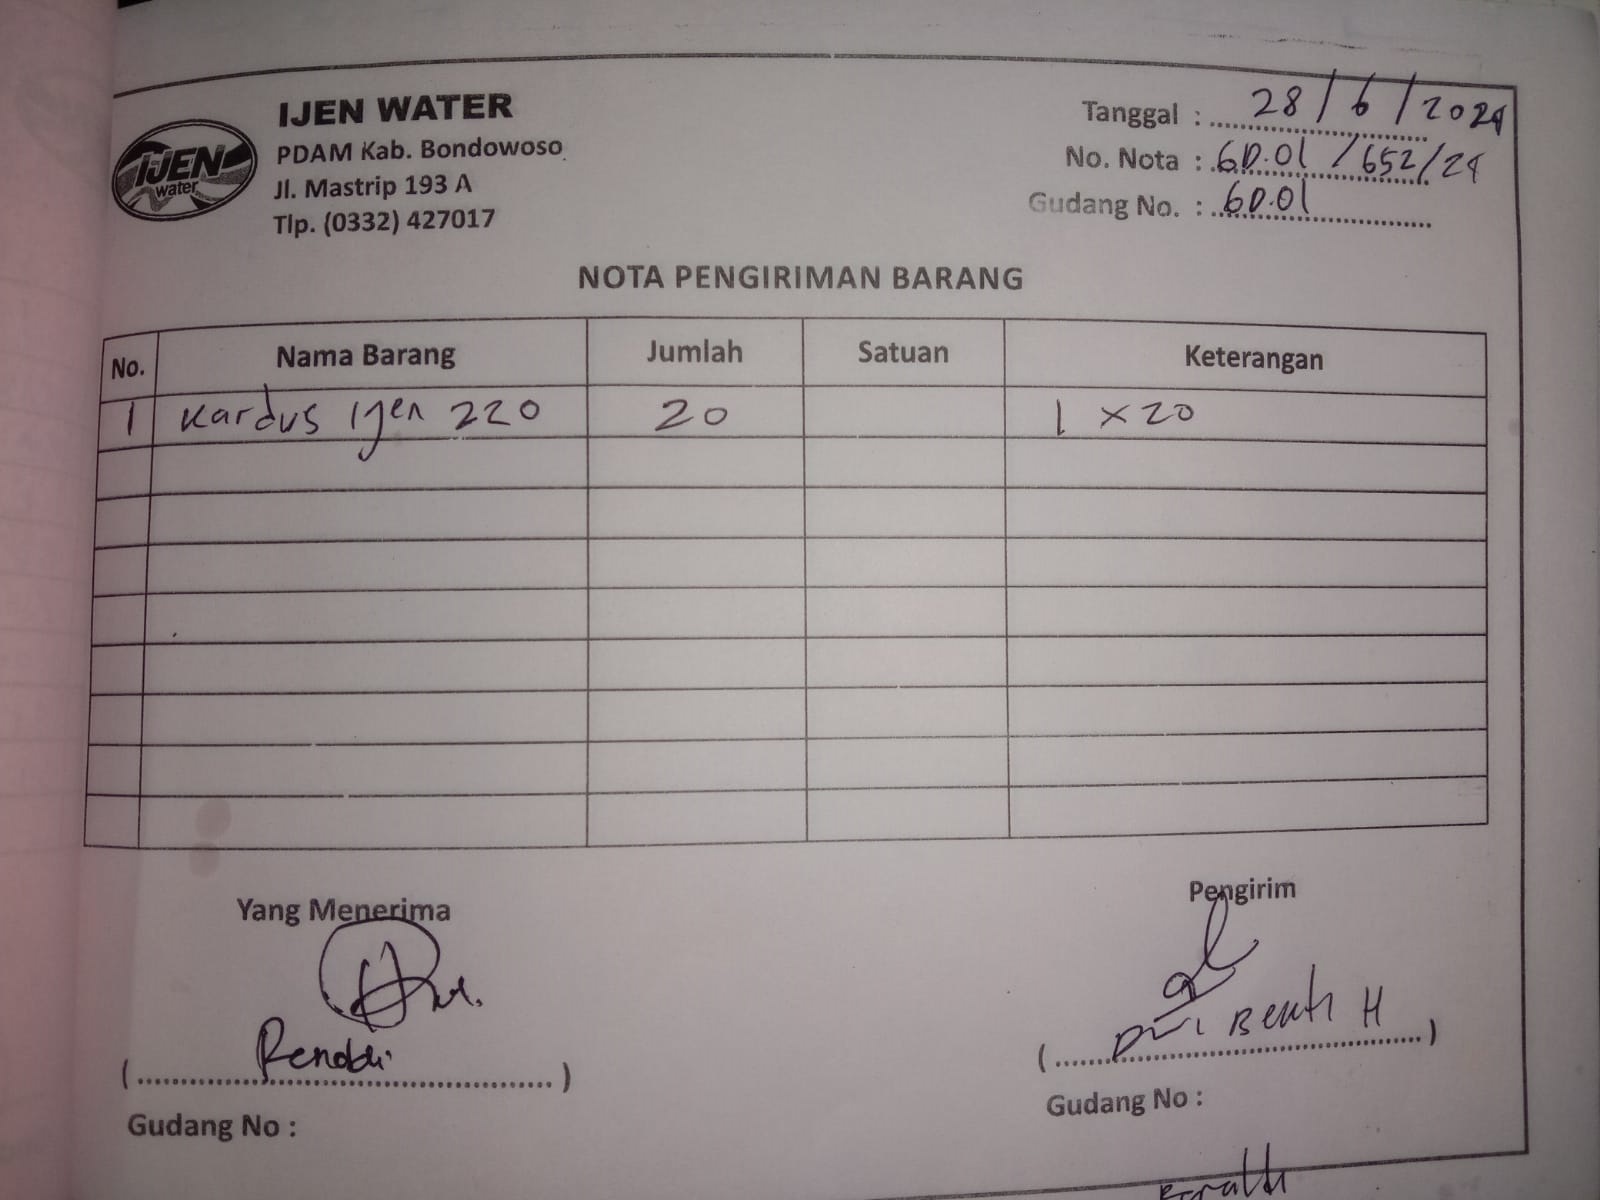 IJEN WATER
PDAM Kab. Bondowoso
Jl. Mastrip 193 A
Tlp. (0332) 427017
IJEN
water
Tanggal : 28/6/2024
No. Nota : GD.01/652/24
Gudang No. : GD.01
NOTA PENGIRIMAN BARANG
No. Nama Barang Jumlah Satuan Keterangan
1 Kardus Ijen 220 20 1 x 20
Yang Menerima Pengirim
( Renddi ) ( H )
Gudang No : Gudang No :